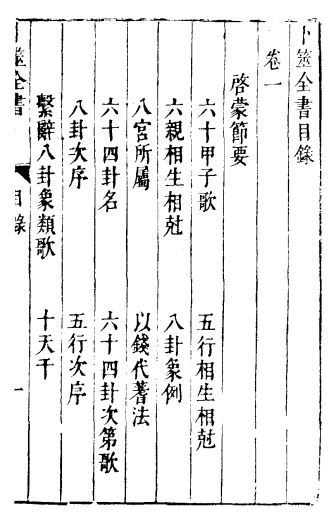 卜筮全書目錄
卷一
啓蒙節要
六十甲子歌　五行相生相尅
六親相生相尅　八卦象例
八宮所屬　以錢代蓍法
六十四卦名　六十四卦次第歌
八卦次序　五行次序
繫辭八卦象類歌　十天干
卜筮全書　目錄　一